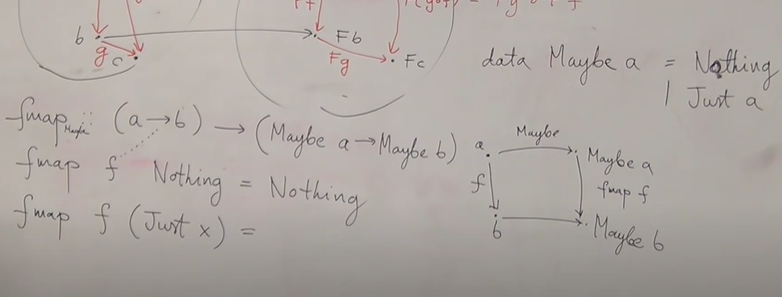 b
g
c
Fb
Fg
Fc
data Maybe a = Nothing
| Just a
fmap Maybe :: (a → b) → (Maybe a → Maybe b)
fmap f Nothing = Nothing
fmap f (Just x) =
a
Maybe
Maybe a
f
fmap f
b
Maybe b